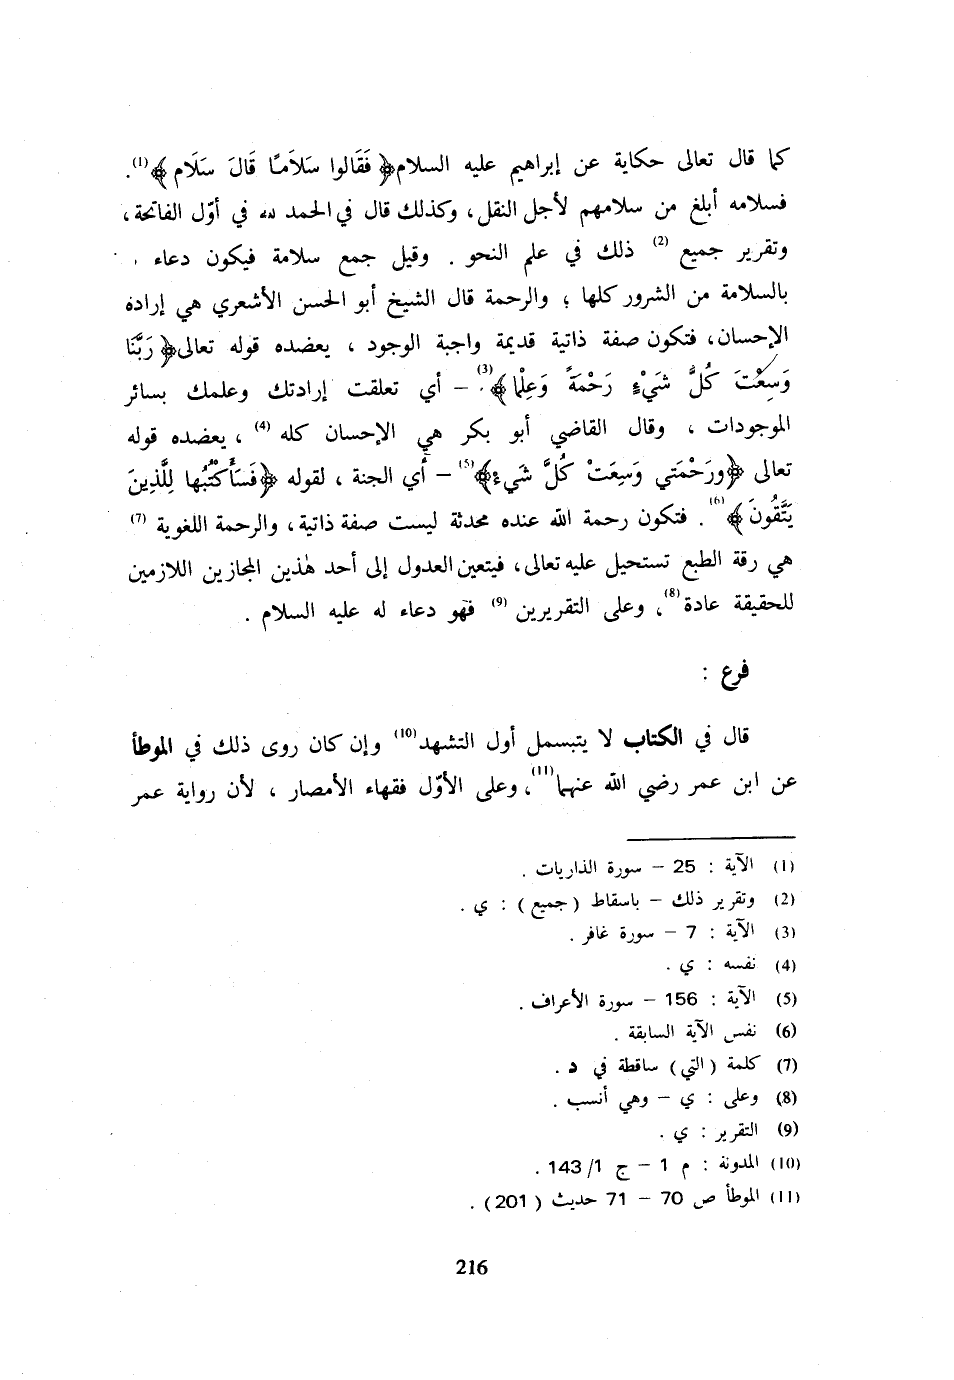 كما قال تعالى حكاية عن إبراهيم عليه السلام ﴿ فَقَالوا سَلاَمـًا قَالَ سَلَام ﴾(1).
فسلامه أبلغ من سلامهم لأجل النقل، وكذلك قال في الحمد لله في أوّل الفاتحة،
وتقرير جميع (2) ذلك في علم النحو . وقيل جمع سلامة فيكون دعاء
بالسلامة من الشرور كلها ؛ والرحمة قال الشيخ أبو الحسن الأشعري هي إرادة
الإحسان، فتكون صفة ذاتية قديمة واجبة الوجود ، يعضده قوله تعالى ﴿ رَبَّنَا
وَسِعْتَ كُلَّ شَيْءٍ رَحْمَةً وَعِلْما ﴾(3). – أي تعلقت إرادتك وعلمك بسائر
الموجودات ، وقال القاضي أبو بكر هي الإحسان كله (4) ، يعضده قوله
تعالى ﴿ ورَحْمَتي وَسِعَتْ كُلَّ شَيء ﴾(5) – أي الجنة ، لقوله ﴿ فَسَأَكْتُبُها لِلَّذِينَ
يَتَّقُونَ ﴾(6) . فتكون رحمة الله عنده محدثة ليست صفة ذاتية، والرحمة اللغوية (7)
هي رقة الطبع تستحيل عليه تعالى، فيتعين العدول إلى أحد هٰذين المجازين اللازمين
للحقيقة عادة(8)، وعلى التقريرين (9) فهو دعاء له عليه السلام .
فرع :
قال في الكتاب لا يتبسمل أول التشهد(10) وإن كان روى ذلك في الموطأ
عن ابن عمر رضي الله عنهما(11)، وعلى الأوّل فقهاء الأمصار ، لأن رواية عمر
(1) الآية : 25 – سورة الذاريات .
(2) وتقرير ذلك – باسقاط ( جميع ) : ي .
(3) الآية : 7 – سورة غافر .
(4) نفسه : ي .
(5) الآية : 156 – سورة الأعراف .
(6) نفس الآية السابقة .
(7) كلمة ( التي ) ساقطة في د .
(8) وعلى : ي – وهي أنسب .
(9) التقرير : ي .
(10) المدونة : م 1 – ج 1/ 143 .
(11) الموطأ ص 70 – 71 حديث ( 201 ) .
216